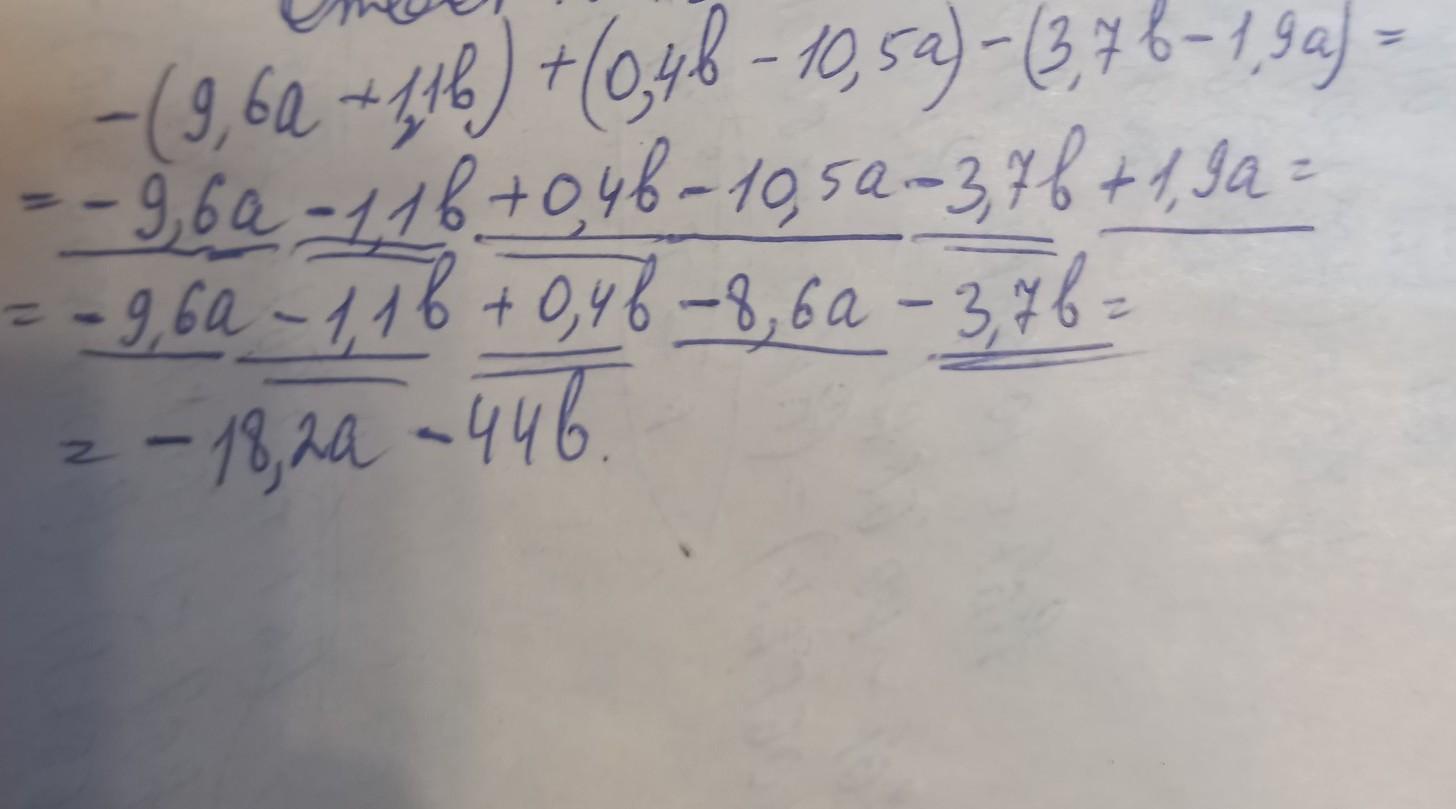 -(9,6a + 1,1b) + (0,4b - 10,5a) - (3,7b - 1,9a) =
= - 9,6a - 1,1b + 0,4b - 10,5a - 3,7b + 1,9a =
= - 9,6a - 1,1b + 0,4b - 8,6a - 3,7b =
= - 18,2a - 44b.